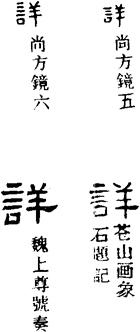 詳
尚方鏡五
詳
尚方鏡六
詳
苍山画象
石題記
詳
魏上尊號奏